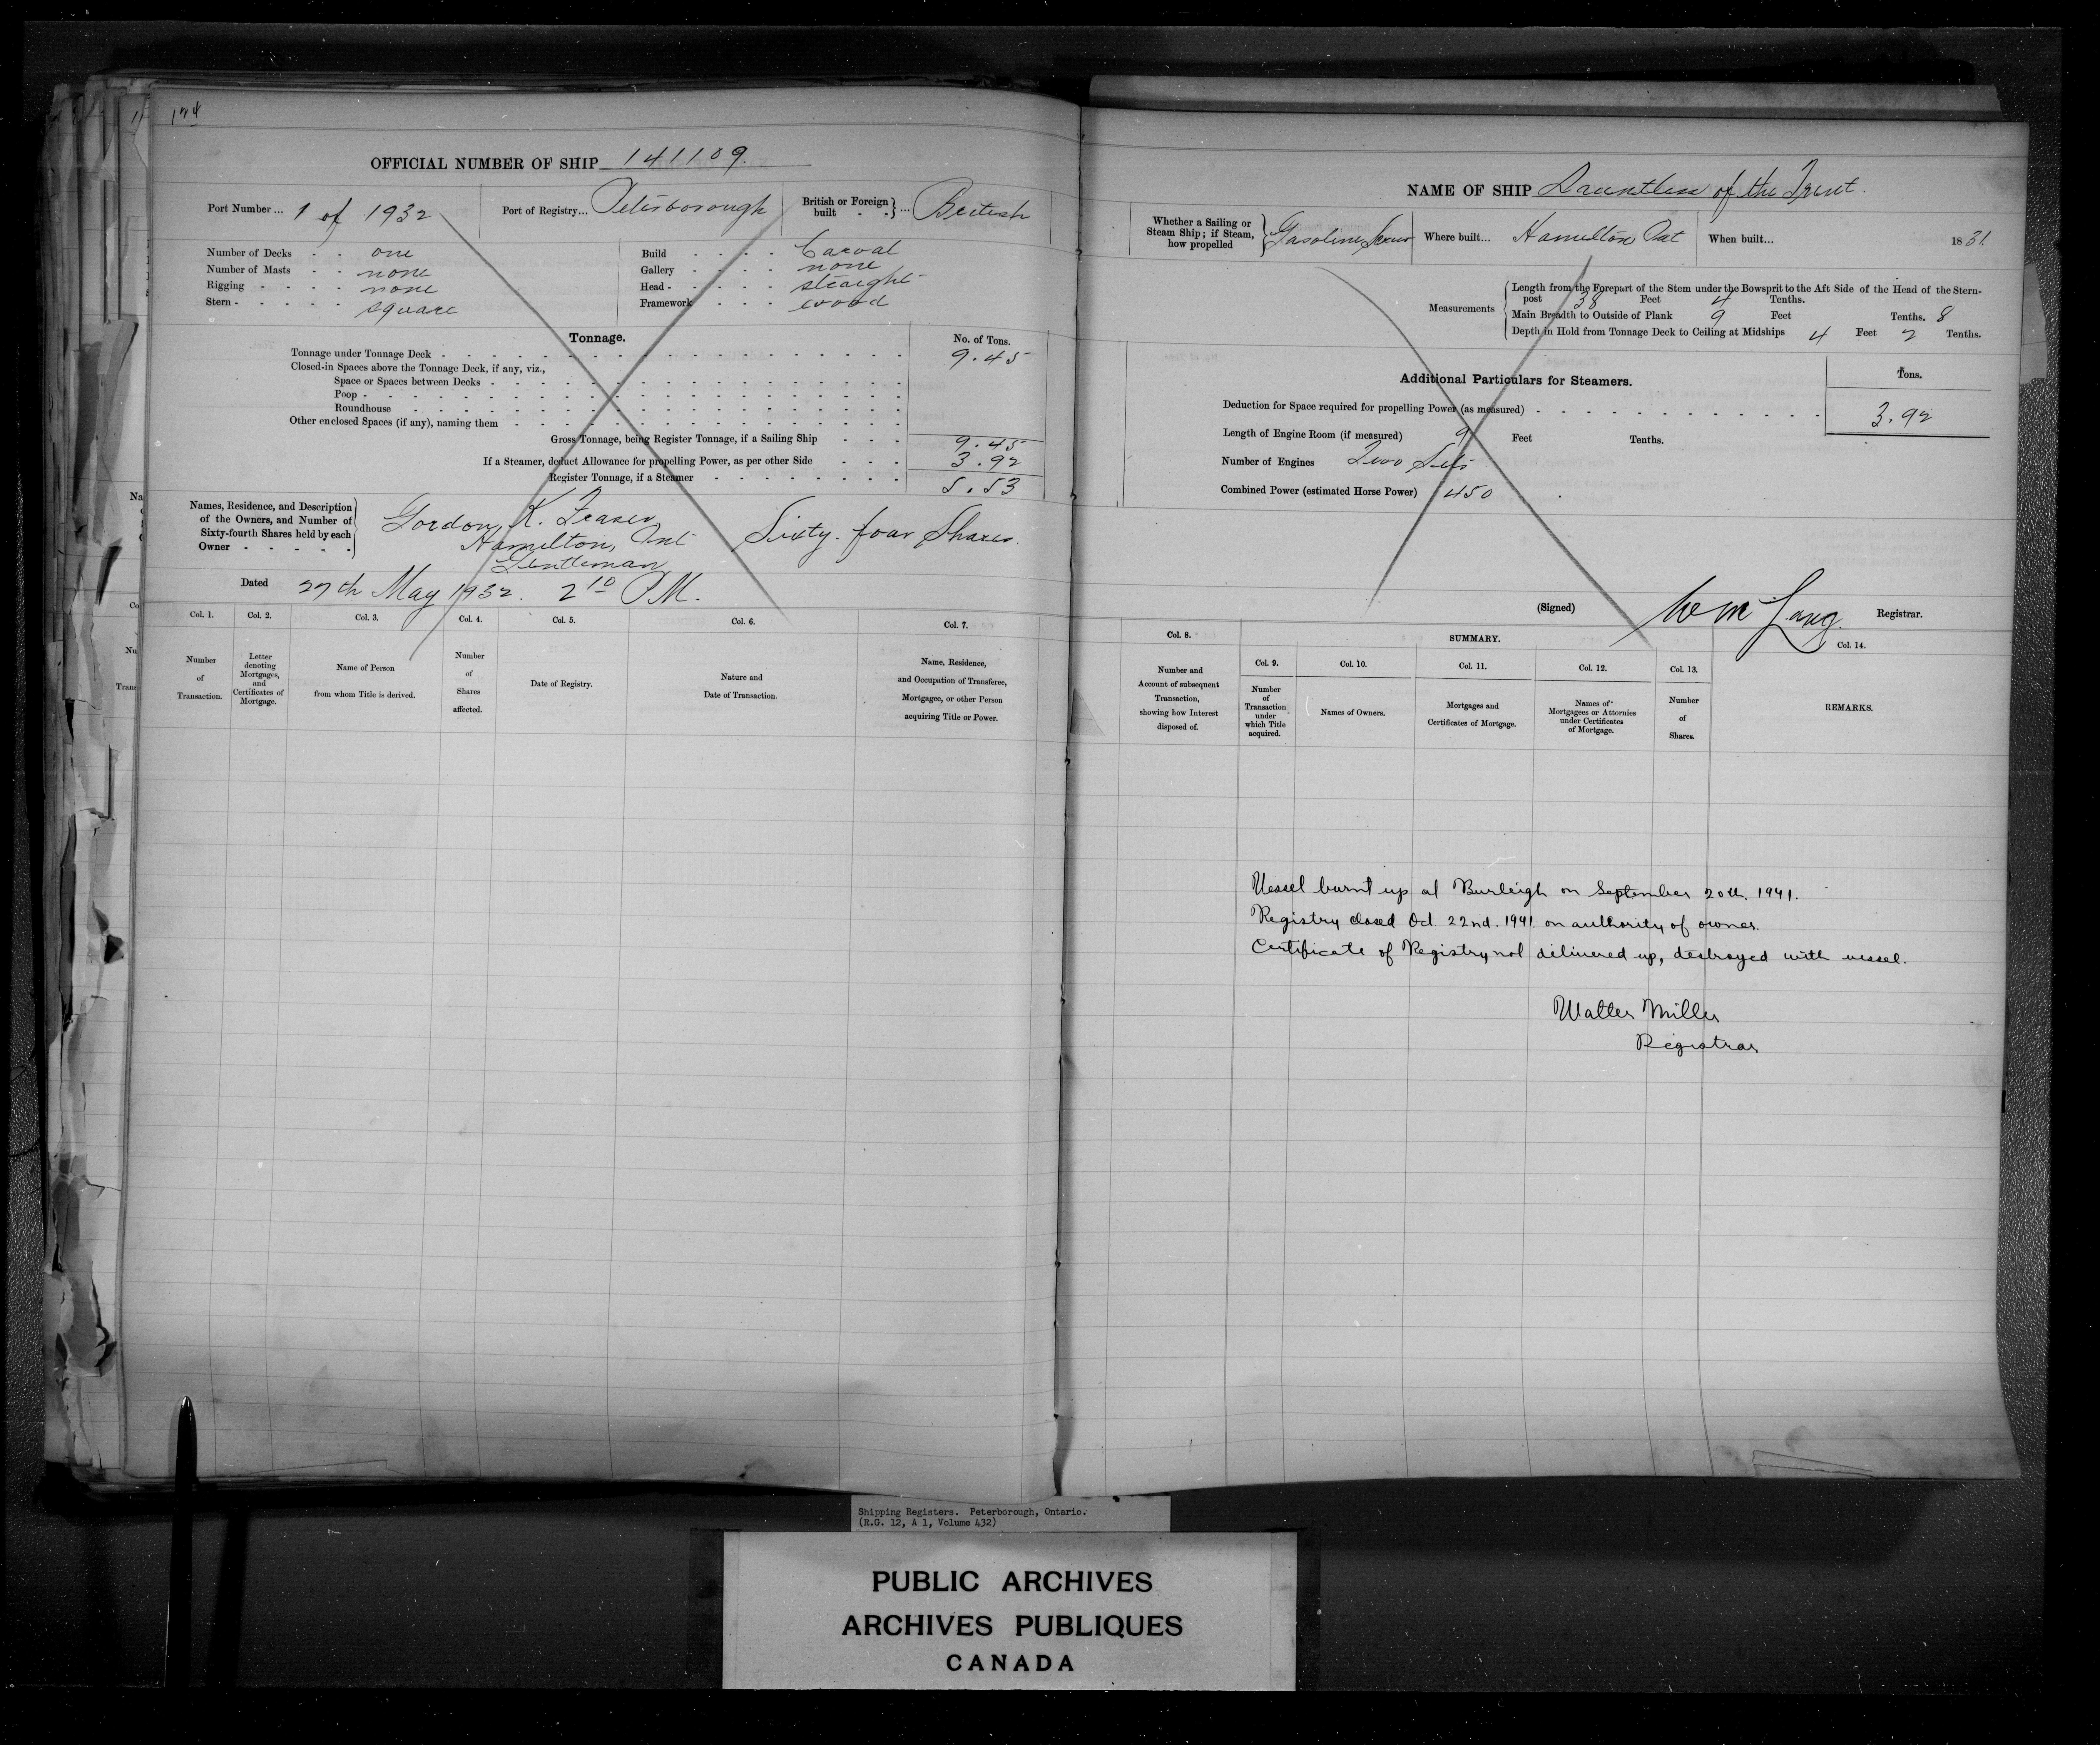 174
OFFICIAL NUMBER OF SHIP 141109.
Port Number ... 1 of 1932
Port of Registry... Peterborough
British or Foreign built } ... British
Number of Decks - - one
Number of Masts - - none
Rigging - - - - none
Stern - - - - - square
Build - - - - Carval
Gallery - - - - none
Head - - - - straight
Framework - - - wood
Tonnage.
No. of Tons.
Tonnage under Tonnage Deck - 9.45
Closed-in Spaces above the Tonnage Deck, if any, viz.,
Space or Spaces between Decks -
Poop -
Roundhouse
Other enclosed Spaces (if any), naming them
Gross Tonnage, being Register Tonnage, if a Sailing Ship - - - 9.45
If a Steamer, deduct Allowance for propelling Power, as per other Side - - - 3.92
Register Tonnage, if a Steamer - 5.53
Names, Residence, and Description of the Owners, and Number of Sixty-fourth Shares held by each Owner - - - - -
Gordon K. Fraser
Hamilton, Ont
Gentleman
Sixty-four Shares.
Dated 27th May 1932. 2 10 P.M.
Col. 1. Number of Transaction.
Col. 2. Letter denoting Mortgages, and Certificates of Mortgage.
Col. 3. Name of Person from whom Title is derived.
Col. 4. Number of Shares affected.
Col. 5. Date of Registry.
Col. 6. Nature and Date of Transaction.
Col. 7. Name, Residence, and Occupation of Transferee, Mortgagee, or other Person acquiring Title or Power.
NAME OF SHIP Dauntless of the Trent.
Whether a Sailing or Steam Ship; if Steam, how propelled } Gasoline Screw
Where built... Hamilton Ont
When built... 1831
Measurements
Length from the Forepart of the Stem under the Bowsprit to the Aft Side of the Head of the Stern-
post 38 Feet 4 Tenths.
Main Breadth to Outside of Plank 9 Feet Tenths. 8
Depth in Hold from Tonnage Deck to Ceiling at Midships 4 Feet 2 Tenths.
Additional Particulars for Steamers.
Tons.
Deduction for Space required for propelling Power (as measured) - 3.92
Length of Engine Room (if measured) 9 Feet Tenths.
Number of Engines Two Sets
Combined Power (estimated Horse Power) 450
(Signed) Wm Lang. Registrar.
Col. 8. Number and Account of subsequent Transaction, showing how Interest disposed of.
SUMMARY.
Col. 9. Number of Transaction under which Title acquired.
Col. 10. Names of Owners.
Col. 11. Mortgages and Certificates of Mortgage.
Col. 12. Names of Mortgagees or Attornies under Certificates of Mortgage.
Col. 13. Number of Shares.
Col. 14. REMARKS.
Vessel burnt up at Burleigh on September 20th. 1941.
Registry closed Oct 22nd. 1941. on authority of owner.
Certificate of Registry not delivered up, destroyed with vessel.
Walter Miller
Registrar
Shipping Registers. Peterborough, Ontario.
(R.G. 12, A 1, Volume 432)
PUBLIC ARCHIVES
ARCHIVES PUBLIQUES
CANADA